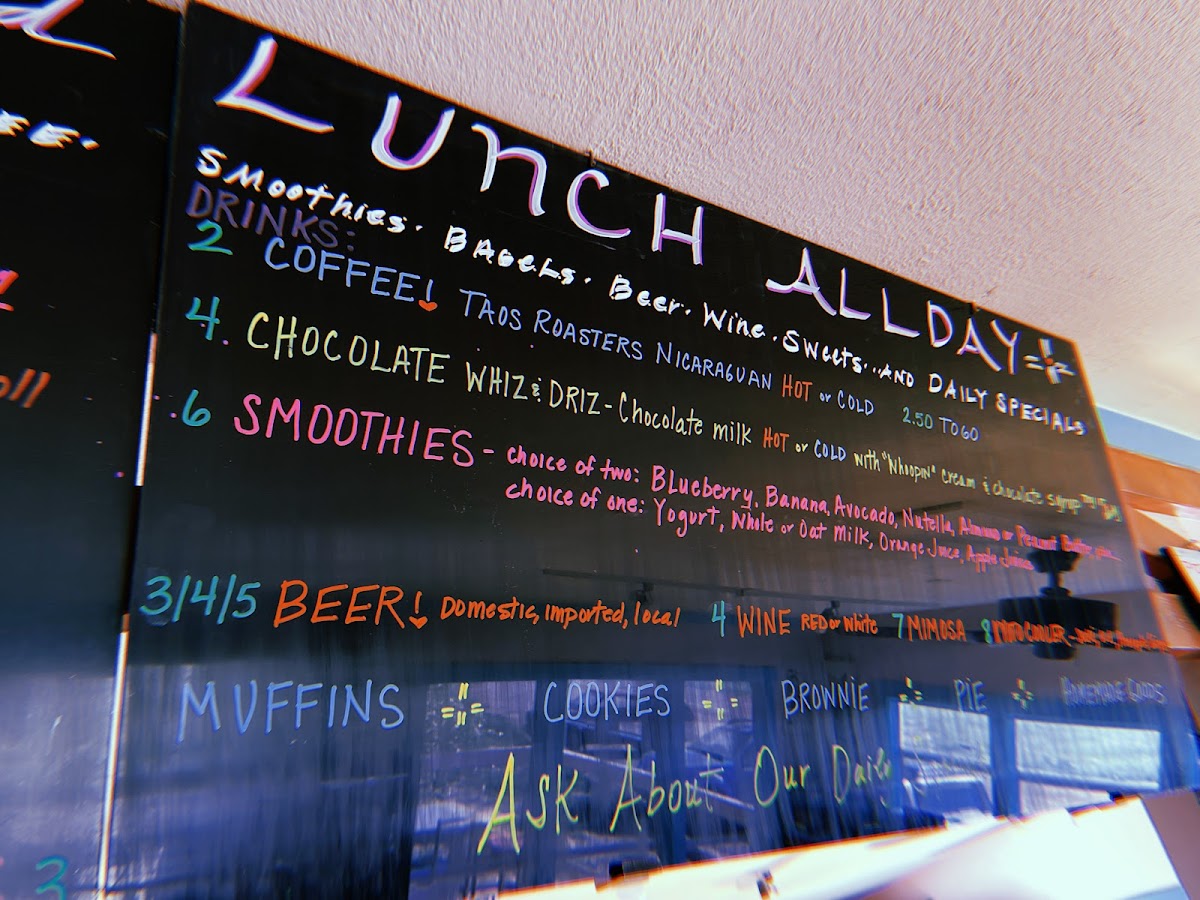 LUNCH ALL DAY
Smoothies. BAGELS. Beer. Wine. Sweets... AND DAILY SPECIALS
DRINKS:
2 COFFEE! TAOS ROASTERS NICARAGUAN HOT or COLD 2.50 TO GO
4. CHOCOLATE WHIZ & DRIZ - Chocolate milk HOT or COLD with "Whoopin" cream & chocolate syrup
.6 SMOOTHIES - choice of two: BLueberry, Banana, Avocado, Nutella, Almond or Peanut Butter,
choice of one: Yogurt, Whole or Oat Milk, Orange Juice, Apple Juice
3/4/5 BEER! Domestic, imported, local 4 WINE RED or White 7 MIMOSA 8 COOLER
MUFFINS COOKIES BROWNIE PIE HOMEMADE GOODS
Ask About Our Daily
3